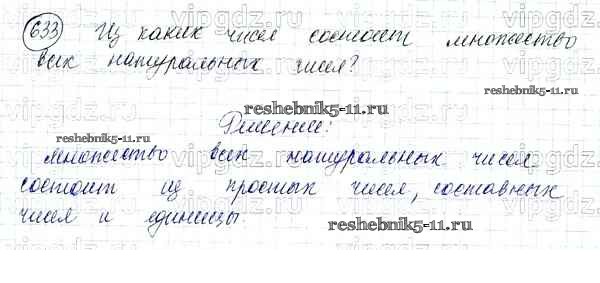 633 Из каких чисел состоит множество
всех натуральных чисел?
reshebnik5-11.ru
Решение:
reshebnik5-11.ru
множество всех натуральных чисел
состоит из простых чисел, составных
чисел и единицы.
reshebnik5-11.ru